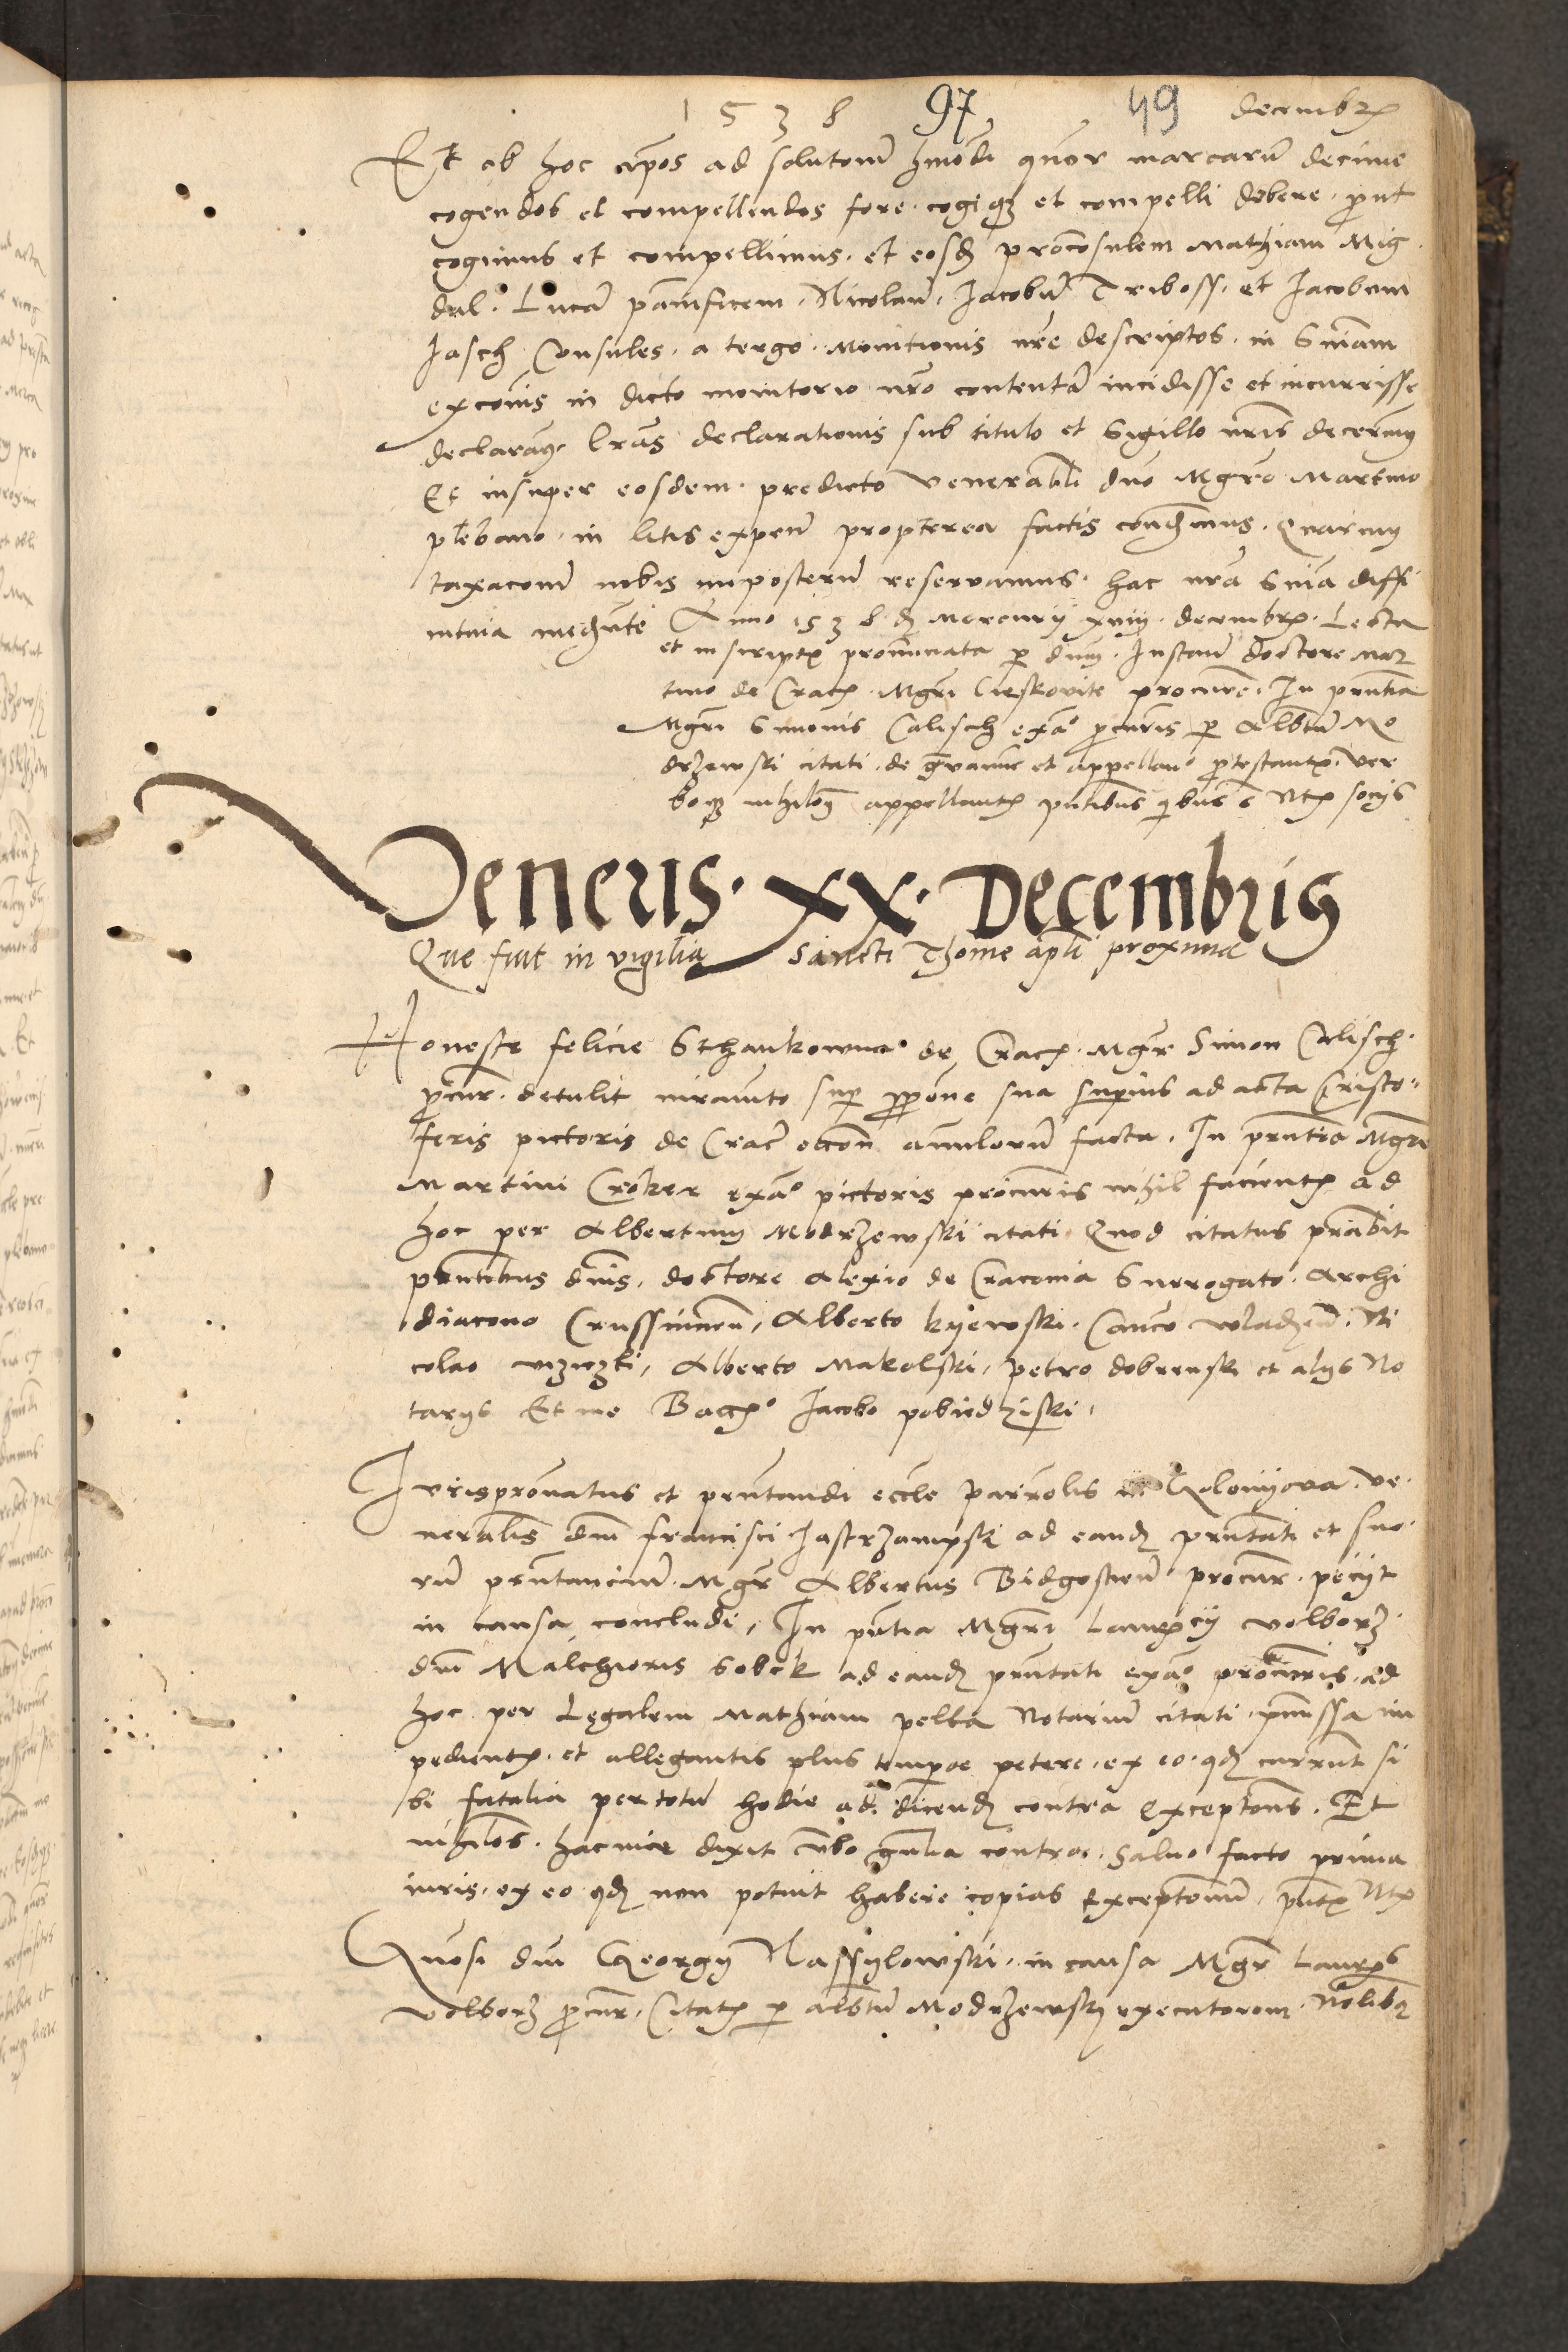 1538 97 49 decembr
Et ob hoc ad solutoem hmodi quor marcarum decime
cogendos et compellendos fore cogiq et compelli debere prout
cogimus et compellimus et eosd proconsulem Mathiam Mig
dal Lucam panificem Nicolaum Jacobum Triboss et Jacobum
Jasch Consules a tergo Monitionis nre descriptos in Sniam
excois in dicto monitorio nro contentam incidisse et incurrisse
declaram lras declarationis sub titulo et Sigillo nris decernim
Et insuper eosdem predicto Venerabili dno Mgro Martino
plebano in litis expen propterea factis condemus Quarum
taxacoem nobis imposterum reservamus hac nra Snia diffi
nitiva mediante Anno 1538 d Mercurij xviij decembr Lecta
et in scriptis pronunciata per dnm Instan doctore Mar
tino de Crac Mgri Cieskovite procure In prntia
Mgri Simonis Calisch exa procuris p Albtum Mo
drzewski citati de gravamine et appellan protestantis ver
boq nihilo appellantis pntibus Ntr socijs
Veneris XX Decembris
Que fuit in vigilia Sancti Thome apli proxima
Honeste felicie Sthankowna de Crac Mgr Simon Calisch
procur detulit iuramto sup ppone sua superius ad acta Cristo
feris pictoris de Crac occon annulorum facta In prntia Mgri
Martini Croker exa pictoris procuris nihil facientis ad
hoc per Albertum Modrzewski citati Quod citatus prabit
prntibus dnis doctore Alexio de Cracovia Surrogato Archi
diacono Crussuicien Alberto Kyewski Canco wladien Ni
colao Alberto Makolski petro dobrenski et alijs No
tarijs Et me Bacc Jacobo pobiedziski
Jurispronatus et prntandi eccle parrolis in Kolonyova ve
nerabilis dni francisci Jastrzampski ad eand prntati et suo
rum prntancium Mgr Albertus Bidgostien procur pecijt
in causa concludi In pntia Mgri Laurecij volborz
dni Malchioris Sobek ad eand prntati exa procuris ad
hoc per Legalem Mathiam pelka Notarium citati premissa im
pedientis et allegantis plus temporis petere ex eo qd currunt si
bi fatalia per totum hodie ad dicend contra exceptones Et
nihilos hac vice dixit vbo gnalia contra salvo facto prima
iuris ex eo qd non potuit habere copias exceptonum pntr Ntr
Quosi dni Georgij Nassylowski in causa Mgr Laure
volborz procur Citatis p albtum Modrzewski executorem Nolibq